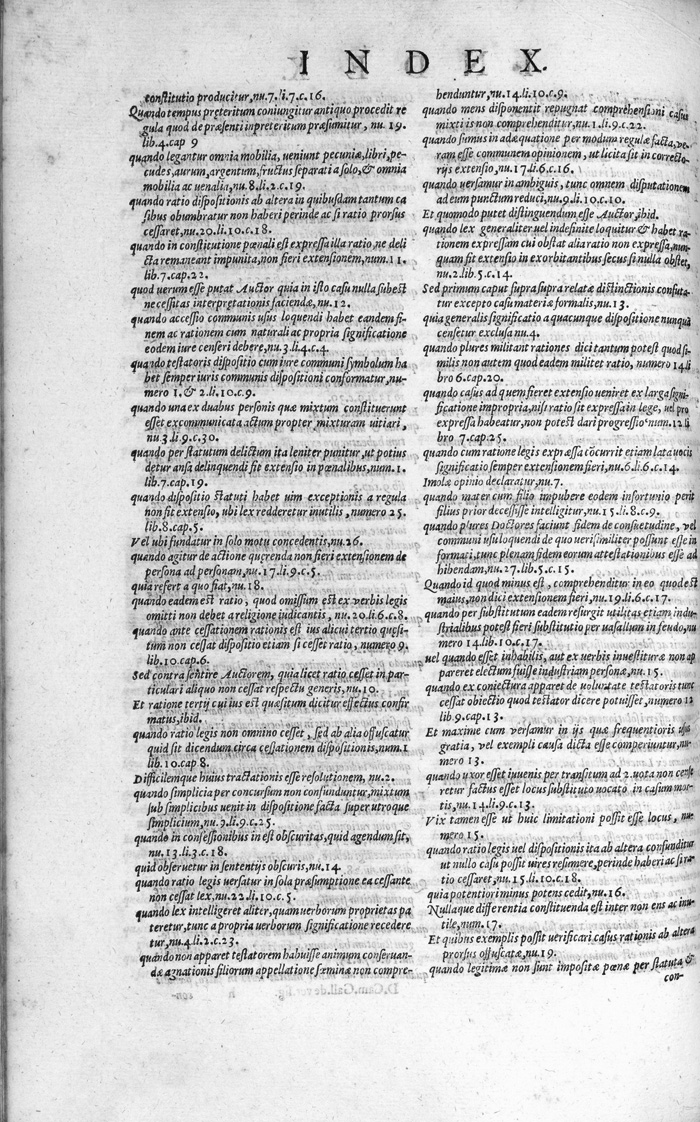 INDEX.
constitutio producitur, nu.7.li.7.c.16.
Quando tempus preteritum coniungitur antiquo procedit re
gula quod de præsenti inpreteritum præsumitur, nu. 19.
lib.4.cap 9
quando legantur omnia mobilia, ueniunt pecuniæ, libri, pe-
cudes, aurum, argentum, fructus separati a solo, & omnia
mobilia ac uenalia, nu.8.li.2.c.19.
quando ratio dispositionis ab altera in quibusdam tantum ca
sibus obumbratur non haberi perinde ac si ratio prorsus
cessaret, nu.20.li.10.c.18.
quando in constitutione pœnali est expressa illa ratio, ne deli
cta remaneant impunita, non fieri extensionem, num.11.
lib.7.cap.22.
quod uerum esse putat Auctor quia in isto casu nulla subest
necessitas interpretationis faciendæ, nu.12.
quando accessio communis usus loquendi habet eandem fi-
nem ac rationem cum naturali ac propria significatione
eodem iure censeri debere, nu.3.li.4.c.4.
quando testatoris dispositio cum iure communi symbolum ha
bet semper iuris communis dispositioni conformatur, nu-
mero 1.& 2.li.10.c.9.
quando una ex duabus personis quæ mixtum constituerunt
esset excommunicata actum propter mixturam uitiari,
nu.3.li.9.c.30.
quando per statutum delictum ita leniter punitur, ut potius
detur ansa delinquendi fit extensio in pœnalibus, num.1.
lib.7.cap.19.
quando dispositio statuti habet uim exceptionis a regula
non fit extensio, ubi lex redderetur inutilis, numero 25.
lib.8.cap.5.
Vel ubi fundatur in solo motu concedentis, nu.26.
quando agitur de actione quærenda non fieri extensionem de
persona ad personam, nu.17.li.9.c.5.
quia refert a quo fiat, nu.18.
quando eadem est ratio, quod omissum est ex verbis legis
omitti non debet a religione iudicantis, nu.20.li.6.c.8.
quando ante cessationem rationis est ius alicui tertio quæsi-
tum non cessat dispositio etiam si cesset ratio, numero 9.
lib.10.cap.6.
Sed contra sentire Auctorem, quia licet ratio cesset in par-
ticulari aliquo non cessat respectu generis, nu.10.
Et ratione tertij cui ius est quæsitum dicitur effectus confir
matus, ibid.
quando ratio legis non omnino cesset, sed ab alia offuscatur
quid sit dicendum circa cessationem dispositionis, num.1
lib.10.cap 8.
Difficilemque huius tractationis esse resolutionem, nu.2.
quando simplicia per concursum non confunduntur, mixtum
sub simplicibus uenit in dispositione facta super utroque
simplicium, nu.9.li.9.c.25.
quando in confessionibus inest obscuritas, quid agendum sit,
nu.13.li.3.c.18.
quid obseruetur in sententijs obscuris, nu.14
quando ratio legis uersatur in sola præsumptione ea cessante
non cessat lex, nu.22.li.10.c.5.
quando lex intelligeret aliter, quam uerborum proprietas pa
teretur, tunc a propria uerborum significatione recedere
tur, nu.4.li.2.c.23.
quando non apparet testatorem habuisse animum conseruan-
dæ agnationis filiorum appellatione fæminæ non compre-
henduntur, nu.14.li.10.c.9.
quando mens disponentit repugnat comprehensioni casu
mixti is non comprehenditur, nu.1.li.9.c.22.
quando sumus in adæquatione per modum regulæ facta, ve-
ram esse communem opinionem, ut licita sit in correcto-
rijs extensio, nu.17.li.6.c.16.
quando versamur in ambiguis, tunc omnem disputationem
ad eum punctum reduci, nu.9.li.10.c.10.
Et quomodo putet distinguendum esse Auctor, ibid.
quando lex generaliter uel indefinite loquitur & habet ra-
tionem expressam cui obstat alia ratio non expressa, nun-
quam fit extensio in exorbitantibus secus si nulla obstet,
nu.2.lib.5.c.14.
Sed primum caput supra supra relatæ distinctionis confuta-
tur excepto casu materiæ formalis, nu.13.
quia generalis significatio a quacunque dispositione nunquā
censetur exclusa nu.4.
quando plures militant rationes dici tantum potest quod si-
milis non autem quod eadem militet ratio, numero 14.li
bro 6.cap.20.
quando casus ad quem fieret extensio ueniret ex larga signi-
ficatione impropria, nisi ratio sit expressa in lege, uel pro
expressa habeatur, non potest dari progressio num.12.li
bro 7.cap.25.
quando cum ratione legis expræssa cōcurrit etiam lata uocis
significatio semper extensionem fieri, nu.6.li.6.c.14.
Imolæ opinio declaratur, nu.7.
quando mater cum filio impubere eodem infortunio perit
filius prior decessisse intelligitur, nu.15.li.8.c.9.
quando plures Doctores faciunt fidem de consuetudine, vel
communi usu loquendi de quo uerisimiliter possunt esse in
formati, tunc plenam fidem eorum attestationibus esse ad
hibendam, nu.27.lib.5.c.15.
Quando id quod minus est, comprehenditur in eo quod est
maius, non dici extensionem fieri, nu.19.li.6.c.17.
quando per substitutum eadem resurgit utilitas etiam indu-
strialibus potest fieri substitutio per uasallum in feudo, nu
mero 14.lib.10.c.17.
uel quando esset inhabilis, aut ex uerbis inuestituræ non ap
pareret electum fuisse industriam personæ, nu.15.
quando ex coniectura apparet de uoluntate testatoris tunc
cessat obiectio quod testator dicere potuisset, numero 12
lib.9.cap.13.
Et maxime cum versamur in ijs quæ frequentioris usu
gratia, vel exempli causa dicta esse comperiuntur, nu-
mero 13.
quando uxor esset iuuenis per transitum ad 2.uota non cense
retur factus esset locus substituto uocato in casum mor-
tis, nu.14.li.9.c.13.
Vix tamen esse ut huic limitationi possit esse locus, nu-
mero 15.
quando ratio legis uel dispositionis ita ab altera confunditur
ut nullo casu possit uires resumere, perinde haberi ac si ra-
tio cessaret, nu.15.li.10.c.18.
quia potentiori minus potens cedit, nu.16.
Nullaque differentia constituenda est inter non ens ac inu-
tile, num.17.
Et quibus exemplis possit uerificari casus rationis ab altera
prorsus offuscatæ, nu.19.
quando legitimæ non sunt impositæ pœnæ per statuta &
con-